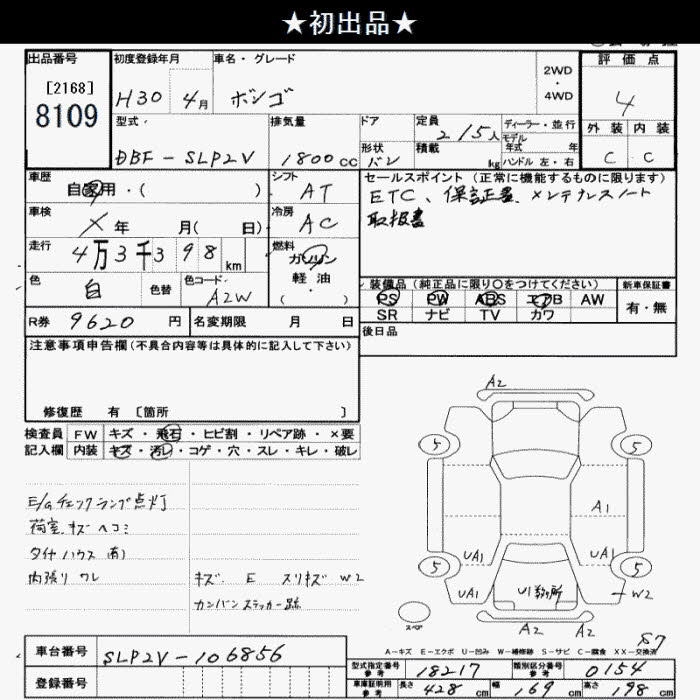 ★初出品★
出品番号 初度登録年月 車名・グレード 2WD ・ 4WD 評価点
[2168]
8109 H30 4月 ボンゴ 4
型式 排気量 ドア 定員 ディーラー・並行 外装 内装
DBF-SLP2V 1800cc 形状 バン 2/5人 積載 kg モデル年式 年 ハンドル 左・右 C C
車歴 自家用・( ) シフト AT セールスポイント(正常に機能するものに限ります)
車検 × 年 月( 日) 冷房 AC ETC、保証書、メンテナンスノート
取扱書
走行 4万3千398km 燃料 ガソリン 軽油 ・( )
色 自 色替 色コード A2W 装備品(純正品に限り○をつけてください) 新車保証書
PS PW ABS エアB AW 有・無
R券 9620円 名変期限 月 日 SR ナビ TV カワ
後日品
注意事項申告欄(不具合内容等は具体的に記入して下さい)
修復歴 有 〔箇所 〕
検査員 FW キズ・飛石・ヒビ割・リペア跡・×要
記入欄 内装 キズ・汚レ・コゲ・穴・スレ・キレ・破レ
E/Gチェックランプ点灯
荷室.キズ ヘコミ
タイヤハウス
内張り ワレ キズ. E スリキズ W2
カンバンステッカー跡
A2
5 5
A1
UA1 UA1
5 5
UA1 U1数ヶ所 UA1 W2
スペア A2 A2
A-キズ E-エクボ U-凹み W-補修跡 S-サビ C-腐食 XX-交換済
57
車台番号 SLP2V-106856
型式指定番号 参考 18217 類別区分番号 参考 0154
登録番号 車庫証明用 参考 長さ 428cm 幅 169cm 高さ 98cm